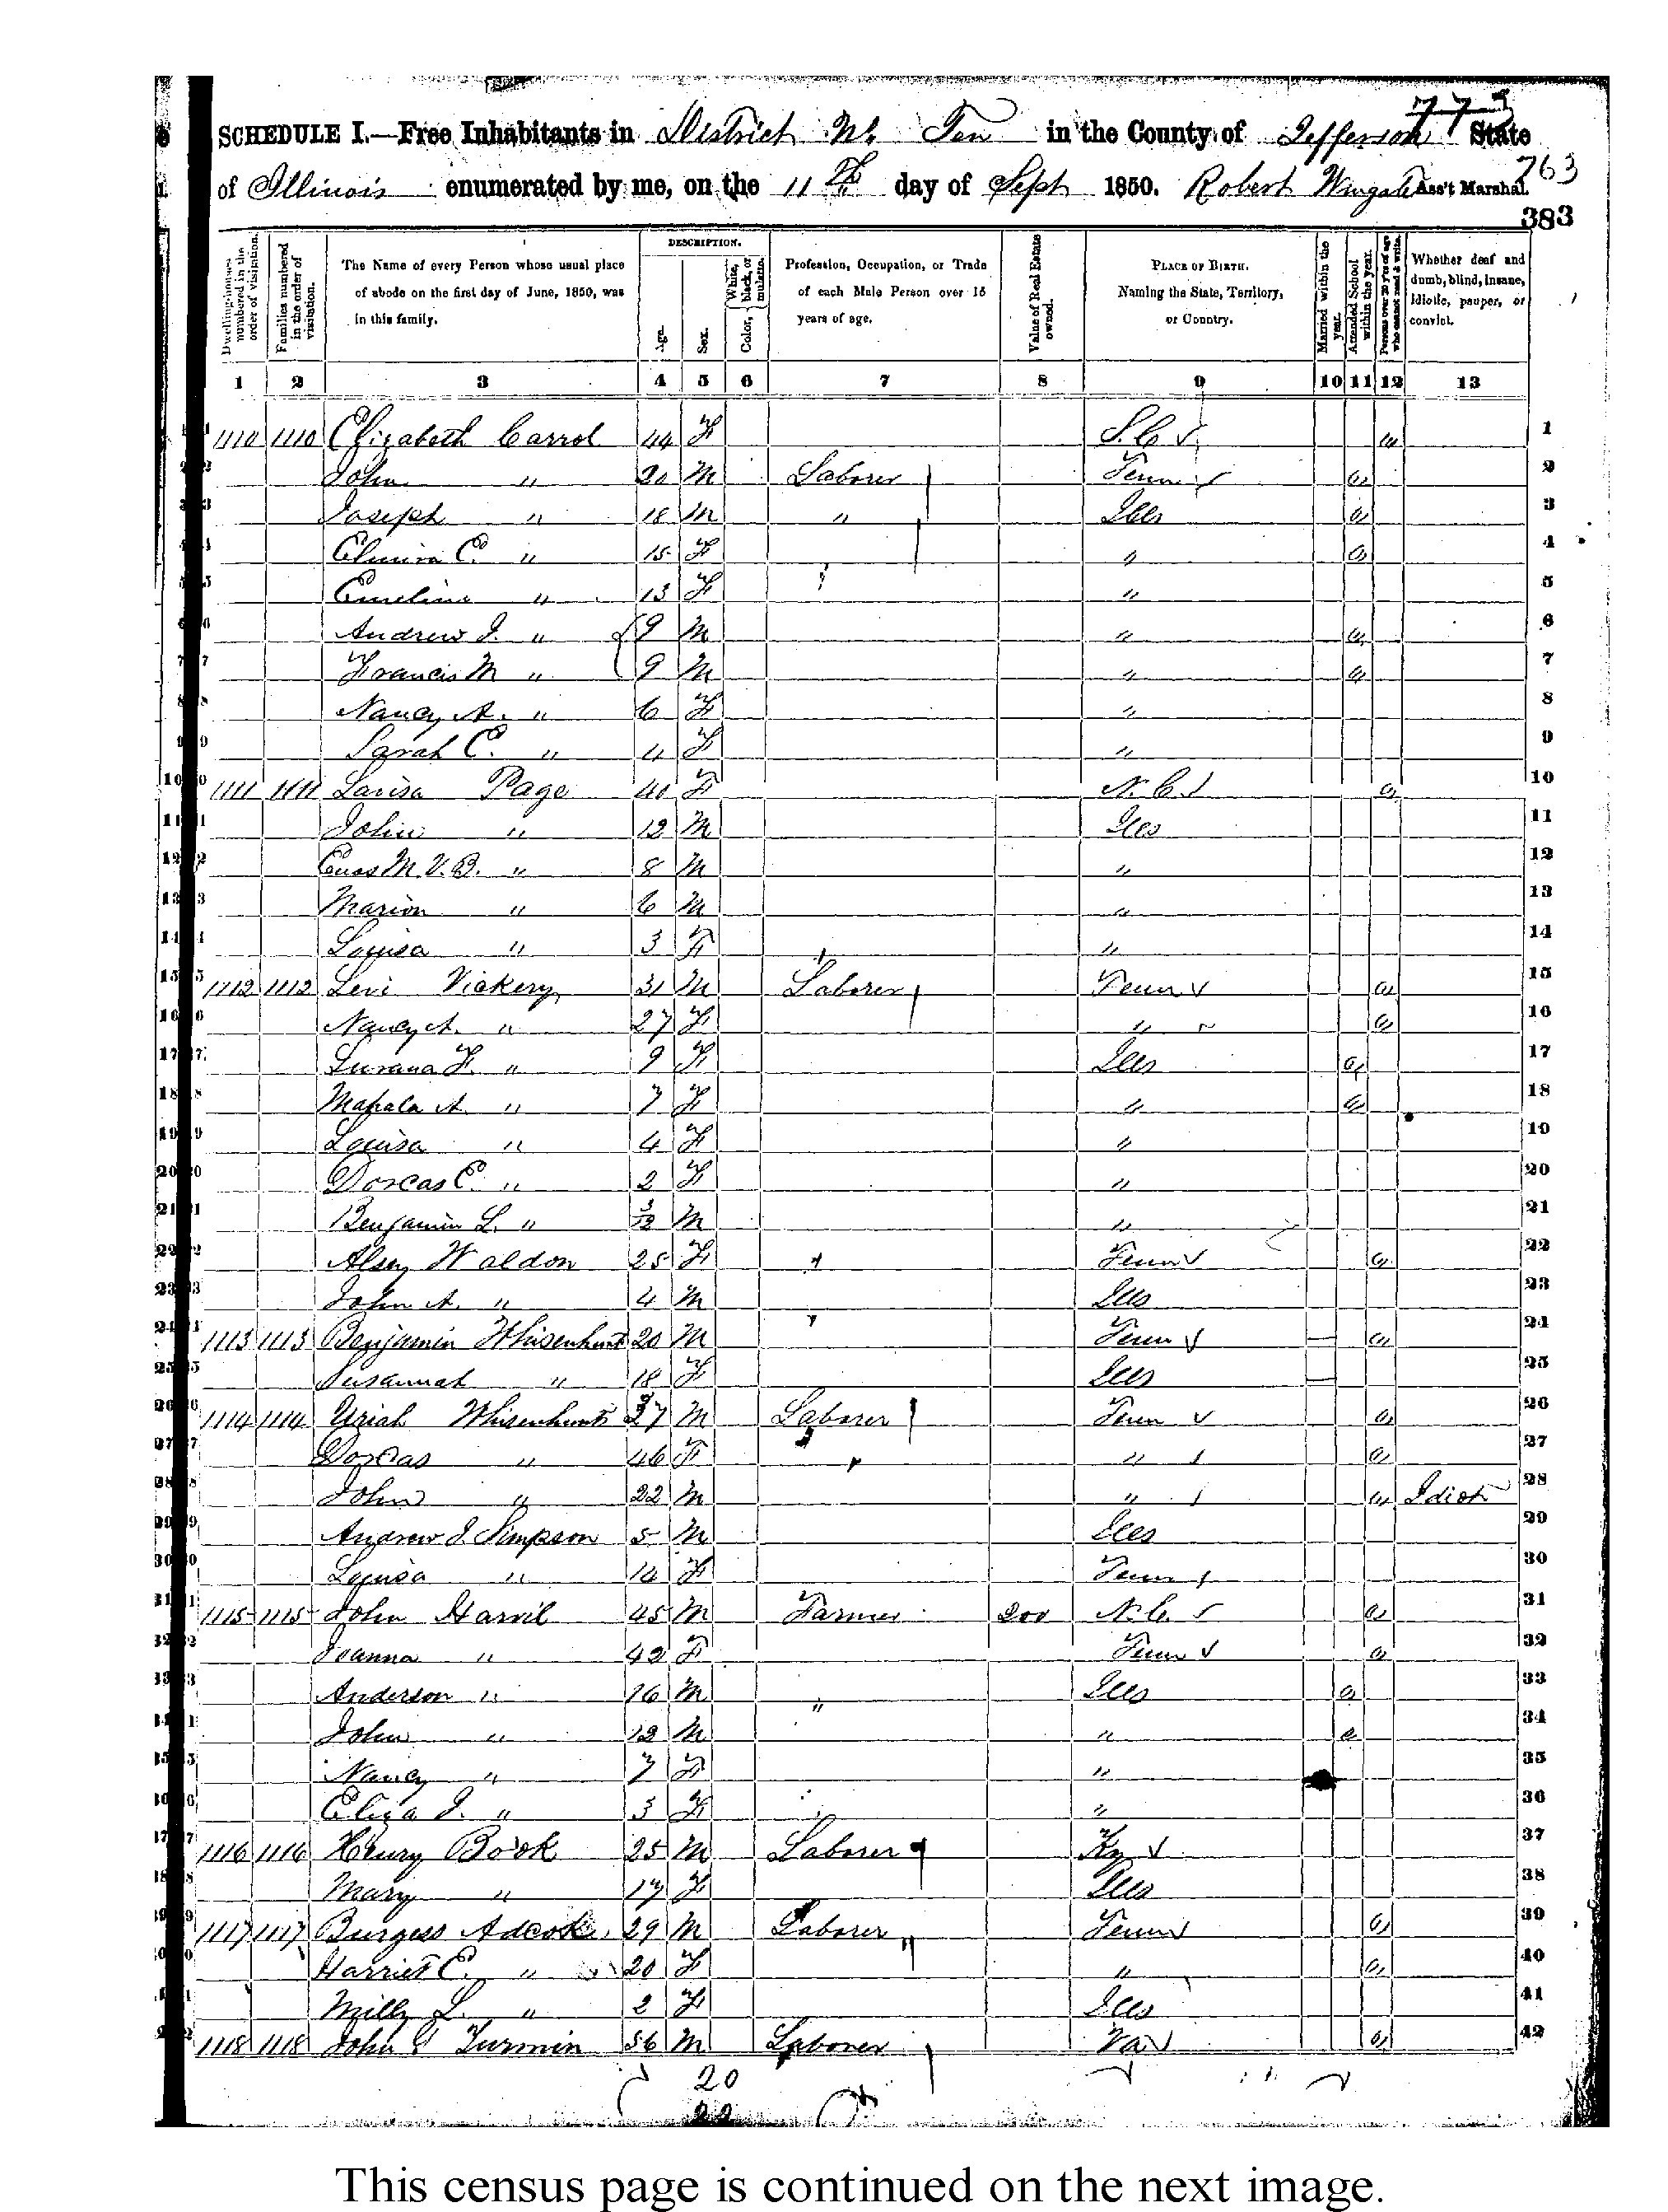 773
SCHEDULE I.—Free Inhabitants in District No. Ten in the County of Jefferson State
of Illinois enumerated by me, on the 11th day of Sept 1850. Robert Wingate Ass't Marshal.
763
383
Dwelling-houses numbered in the order of visitation.
Families numbered in the order of visitation.
The Name of every Person whose usual place of abode on the first day of June, 1850, was in this family.
DESCRIPTION.
Age.
Sex.
Color, White, black, or mulatto.
Profession, Occupation, or Trade of each Male Person over 15 years of age.
Value of Real Estate owned.
PLACE OF BIRTH. Naming the State, Territory, or Country.
Married within the year.
Attended School within the year.
Persons over 20 y'rs of age who cannot read & write.
Whether deaf and dumb, blind, insane, idiotic, pauper, or convict.
1 2 3 4 5 6 7 8 9 10 11 12 13
1110 1110 Elizabeth Carrol 44 F S.C. 1
2 John " 20 M Laborer Tenn 2
3 Joseph " 18 M " Ills 3
4 Elmira C. " 15 F " 4
5 Emeline " 13 F " 5
6 Andrew J. " 9 M " 6
7 Francis M " 9 M " 7
8 Nancy A. " 6 F " 8
9 Sarah E. " 4 F " 9
10 1111 1111 Larisa Page 40 F N.C. 10
11 John " 12 M Ills 11
12 Enos M.V.B. " 8 M " 12
13 Marion " 6 M " 13
14 Louisa " 3 F " 14
15 1112 1112 Levi Vickery 31 M Laborer Tenn 15
16 Nancy A. " 27 F " 16
17 Lurana F. " 9 F Ills 17
18 Mahala A. " 7 F " 18
19 Louisa " 4 F " 19
20 Dorcas E. " 2 F " 20
21 Benjamin L. " 3/12 M " 21
22 Alsey Waldon 25 F Tenn 22
23 John A. " 4 M Ills 23
24 1113 1113 Benjamin Whisenhunt 20 M Tenn 24
25 Susannah " 18 F Ills 25
26 1114 1114 Uriah Whisenhunt 27 M Laborer Tenn 26
27 Dorcas " 46 F " 27
28 John " 22 M " Idiot 28
29 Andrew J. Simpson 5 M Ills 29
30 Louisa " 14 F Tenn 30
31 1115 1115 John Harvil 45 M Farmer 200 N.C. 31
32 Joanna " 42 F Tenn 32
33 Anderson " 16 M " Ills 33
34 John " 12 M " 34
35 Nancy " 7 F " 35
36 Eliza J. " 3 F " 36
37 1116 1116 Henry Book 25 M Laborer Ky 37
38 Mary " 17 F Ills 38
39 1117 1117 Burgess Adcock 29 M Laborer Tenn 39
40 Harriet E. " 20 F " 40
41 Milly L. " 2 F Ills 41
42 1118 1118 John G Turmin 56 M Laborer Va 42
20
22
This census page is continued on the next image.